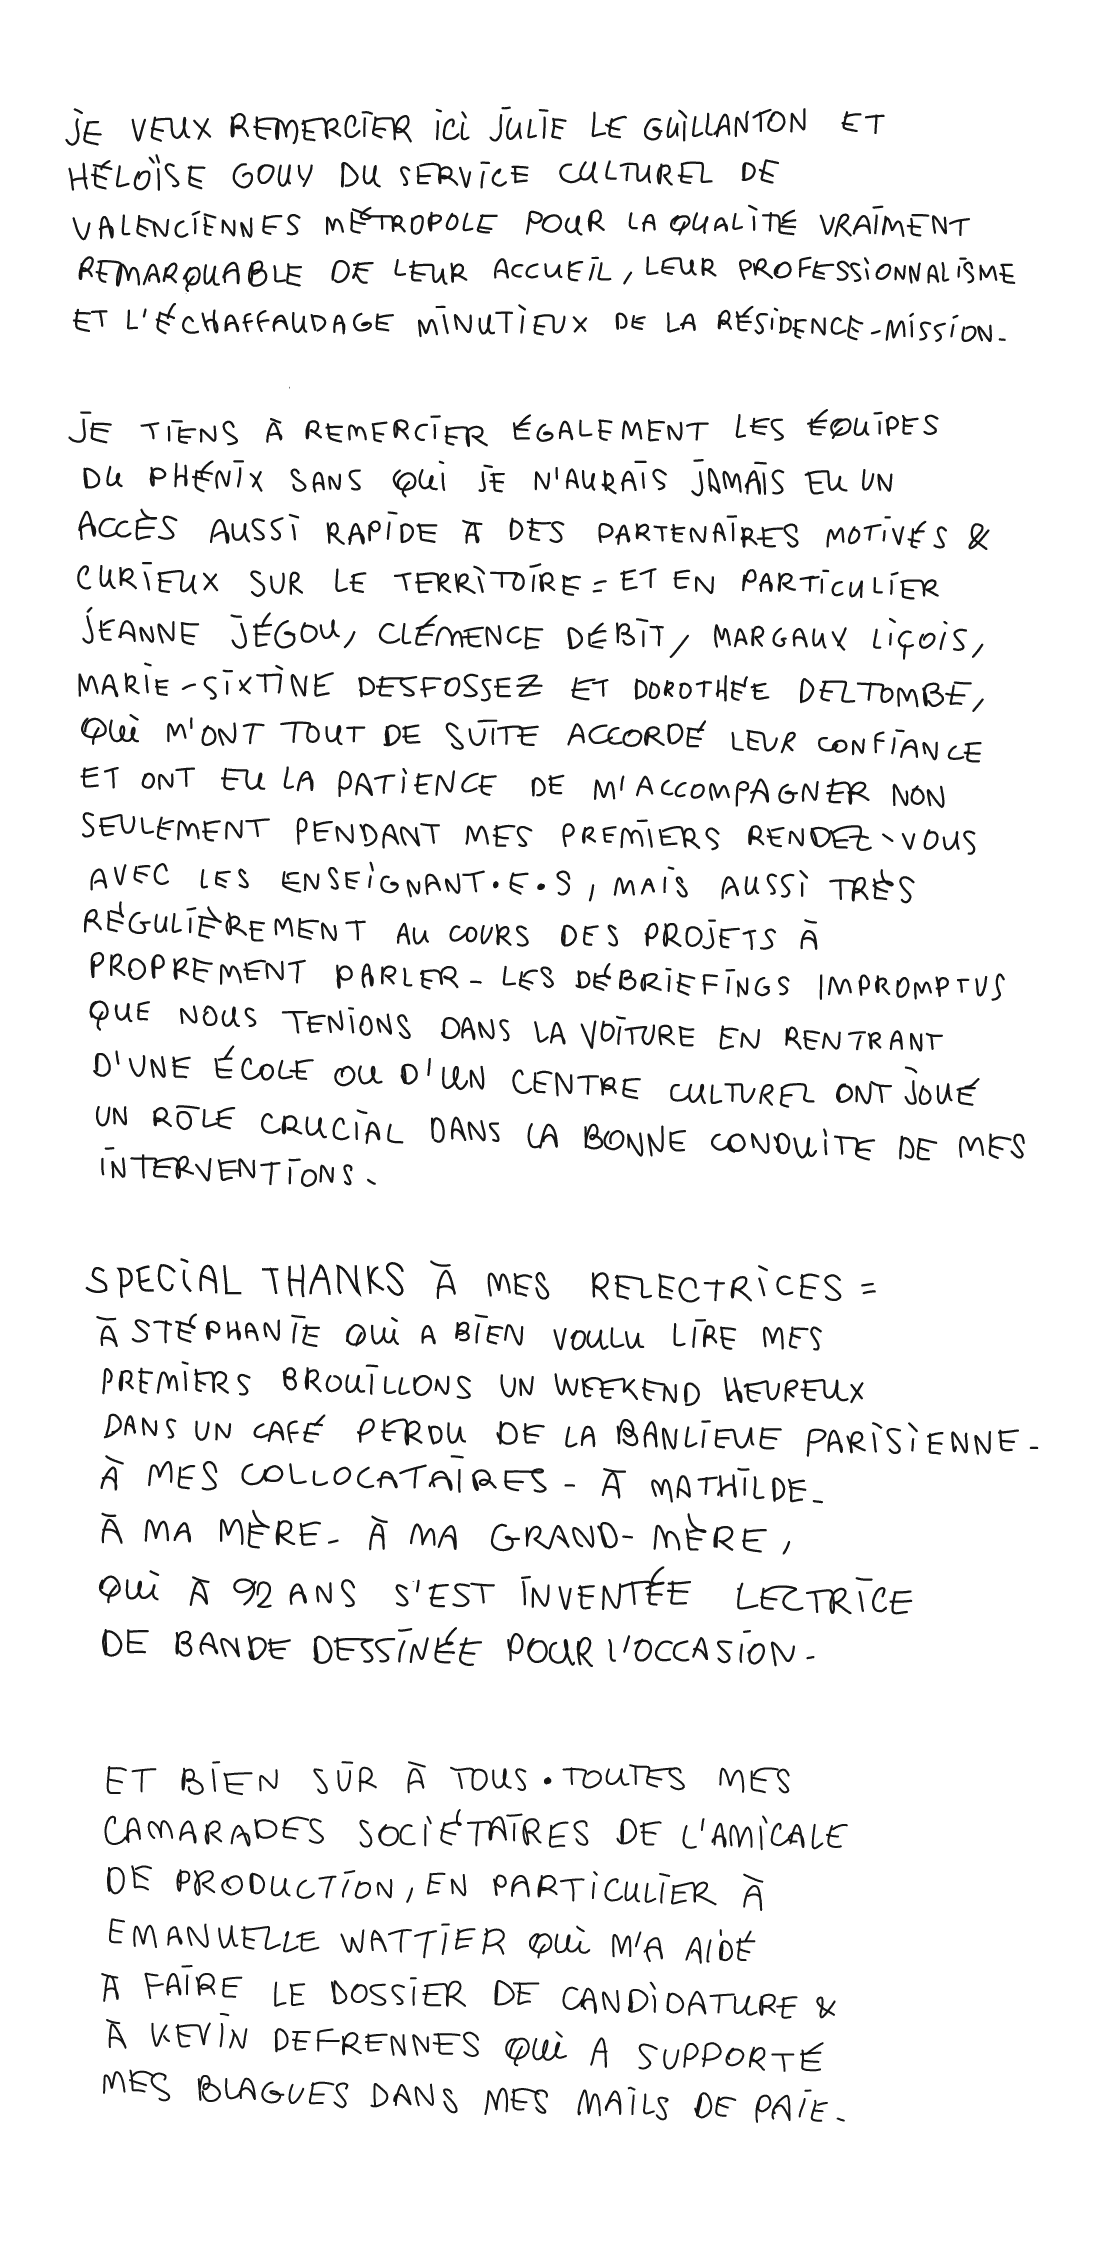 JE VEUX REMERCIER ICI JULIE LE GUILLANTON ET
HÉLOÏSE GOUY DU SERVICE CULTUREL DE
VALENCIENNES MÉTROPOLE POUR LA QUALITÉ VRAIMENT
REMARQUABLE DE LEUR ACCUEIL, LEUR PROFESSIONNALISME
ET L'ÉCHAFFAUDAGE MINUTIEUX DE LA RÉSIDENCE-MISSION-
JE TIENS À REMERCIER ÉGALEMENT LES ÉQUIPES
DU PHÉNIX SANS QUI JE N'AURAIS JAMAIS EU UN
ACCÈS AUSSI RAPIDE À DES PARTENAIRES MOTIVÉS &
CURIEUX SUR LE TERRITOIRE = ET EN PARTICULIER
JEANNE JÉGOU, CLÉMENCE DÉBIT, MARGAUX LIÇOIS,
MARIE-SIXTINE DESFOSSEZ ET DOROTHÉE DELTOMBE,
QUI M'ONT TOUT DE SUITE ACCORDÉ LEUR CONFIANCE
ET ONT EU LA PATIENCE DE M'ACCOMPAGNER NON
SEULEMENT PENDANT MES PREMIERS RENDEZ-VOUS
AVEC LES ENSEIGNANT·E·S, MAIS AUSSI TRÈS
RÉGULIÈREMENT AU COURS DES PROJETS À
PROPREMENT PARLER- LES DÉBRIEFINGS IMPROMPTUS
QUE NOUS TENIONS DANS LA VOITURE EN RENTRANT
D'UNE ÉCOLE OU D'UN CENTRE CULTUREL ONT JOUÉ
UN RÔLE CRUCIAL DANS LA BONNE CONDUITE DE MES
INTERVENTIONS-
SPECIAL THANKS À MES RELECTRICES =
À STÉPHANIE QUI A BIEN VOULU LIRE MES
PREMIERS BROUILLONS UN WEEKEND HEUREUX
DANS UN CAFÉ PERDU DE LA BANLIEUE PARISIENNE-
À MES COLLOCATAIRES- À MATHILDE-
À MA MÈRE- À MA GRAND-MÈRE,
QUI À 92 ANS S'EST INVENTÉE LECTRICE
DE BANDE DESSINÉE POUR L'OCCASION-
ET BIEN SÛR À TOUS·TOUTES MES
CAMARADES SOCIÉTAIRES DE L'AMICALE
DE PRODUCTION, EN PARTICULIER À
EMANUELLE WATTIER QUI M'A AIDÉ
À FAIRE LE DOSSIER DE CANDIDATURE &
À KEVIN DEFRENNES QUI A SUPPORTÉ
MES BLAGUES DANS MES MAILS DE PAIE-